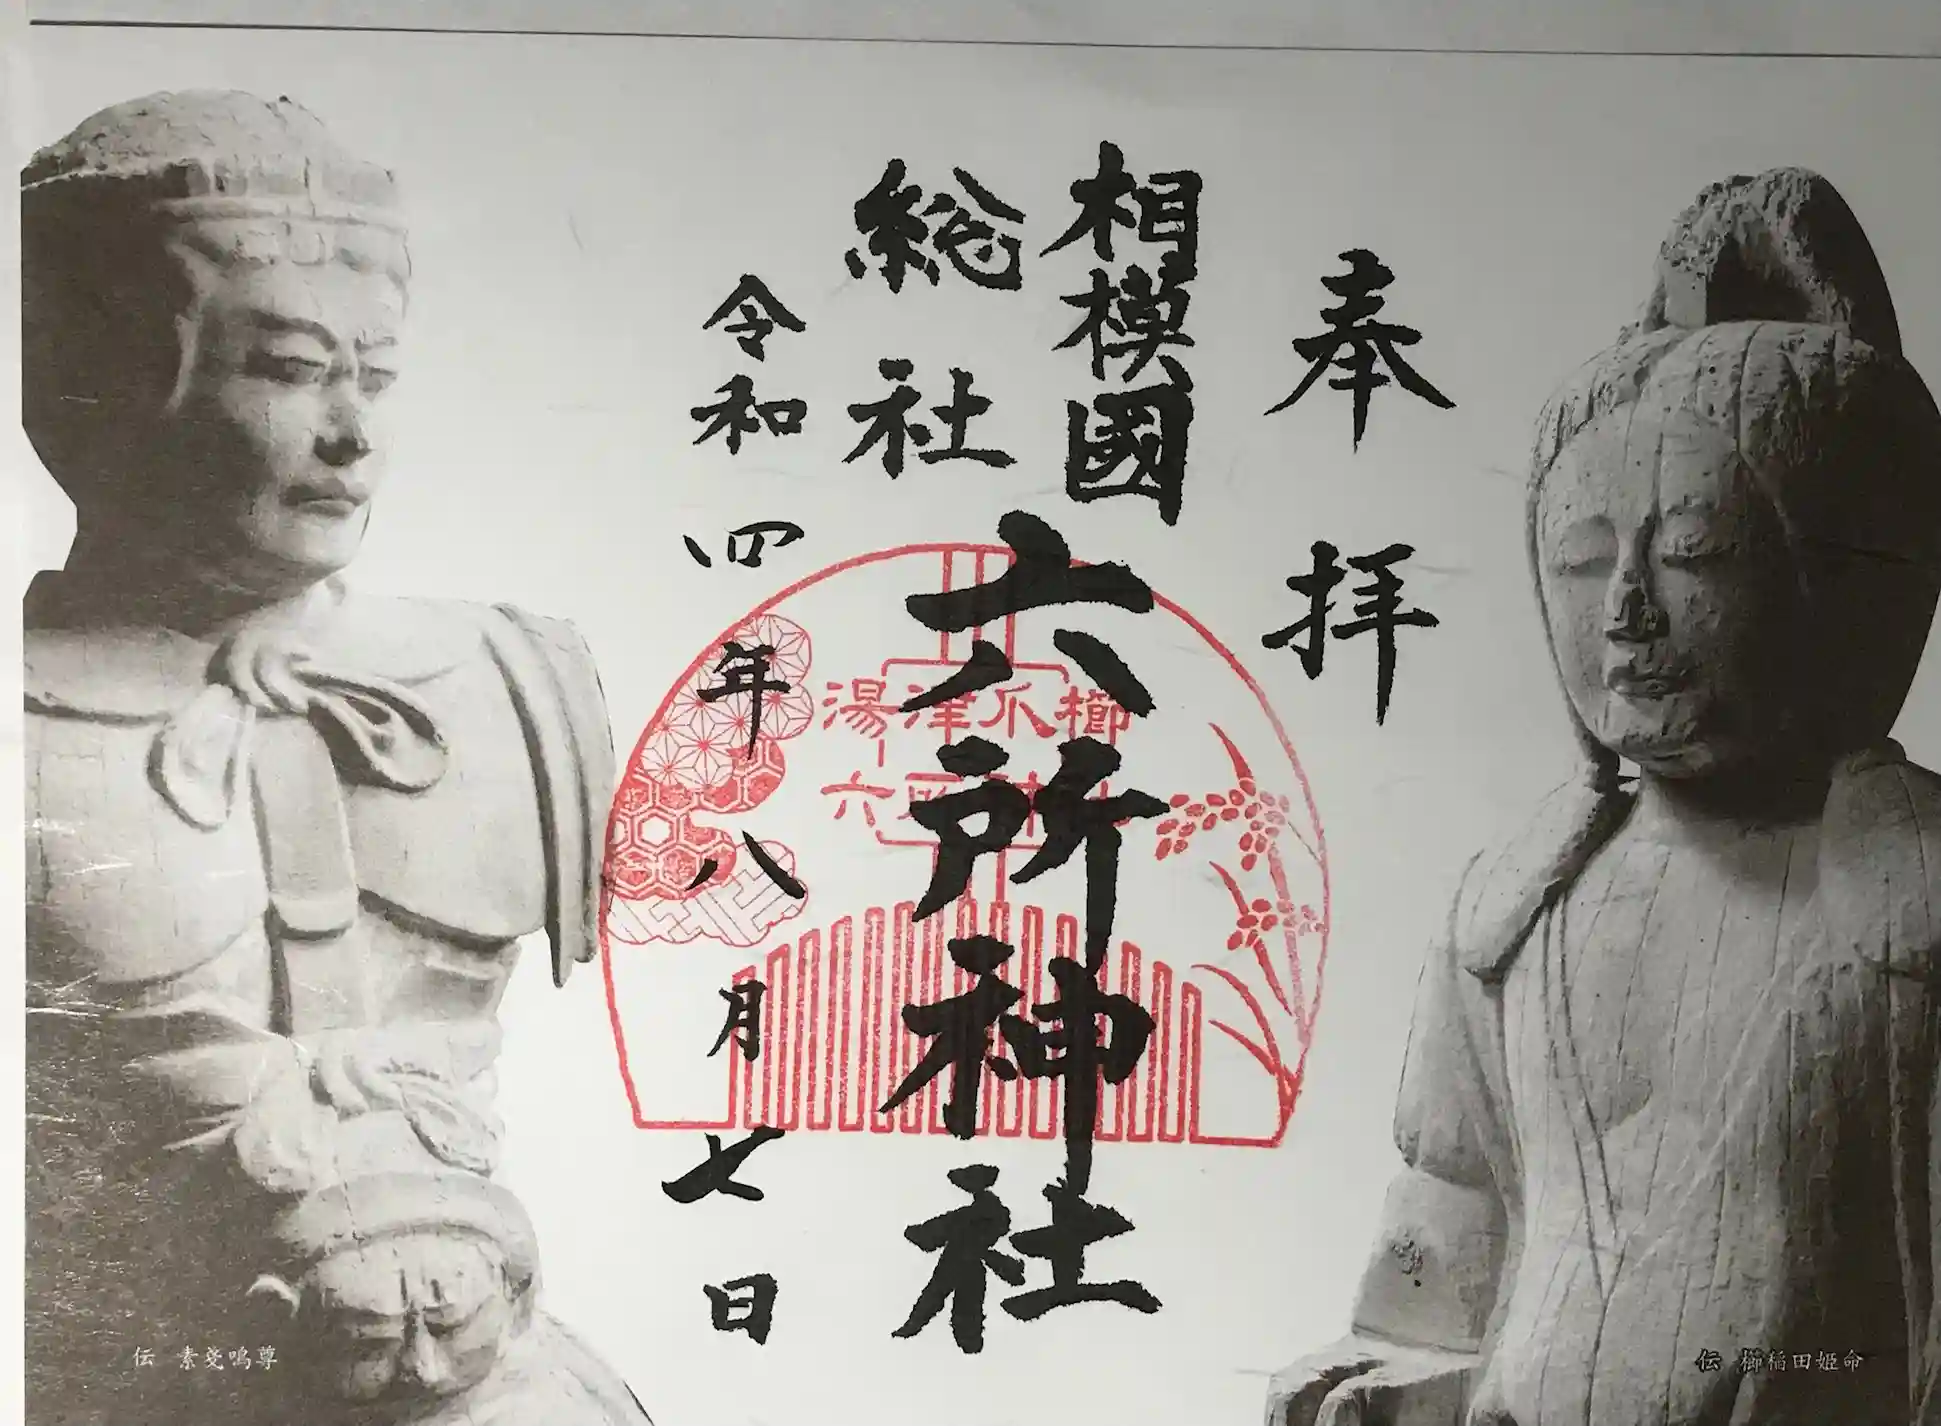 奉拝
相模國
総社
六所神社
令和四年八月七日
櫛爪津湯
六所神社
伝 櫛稲田姫命
伝 素戔嗚尊